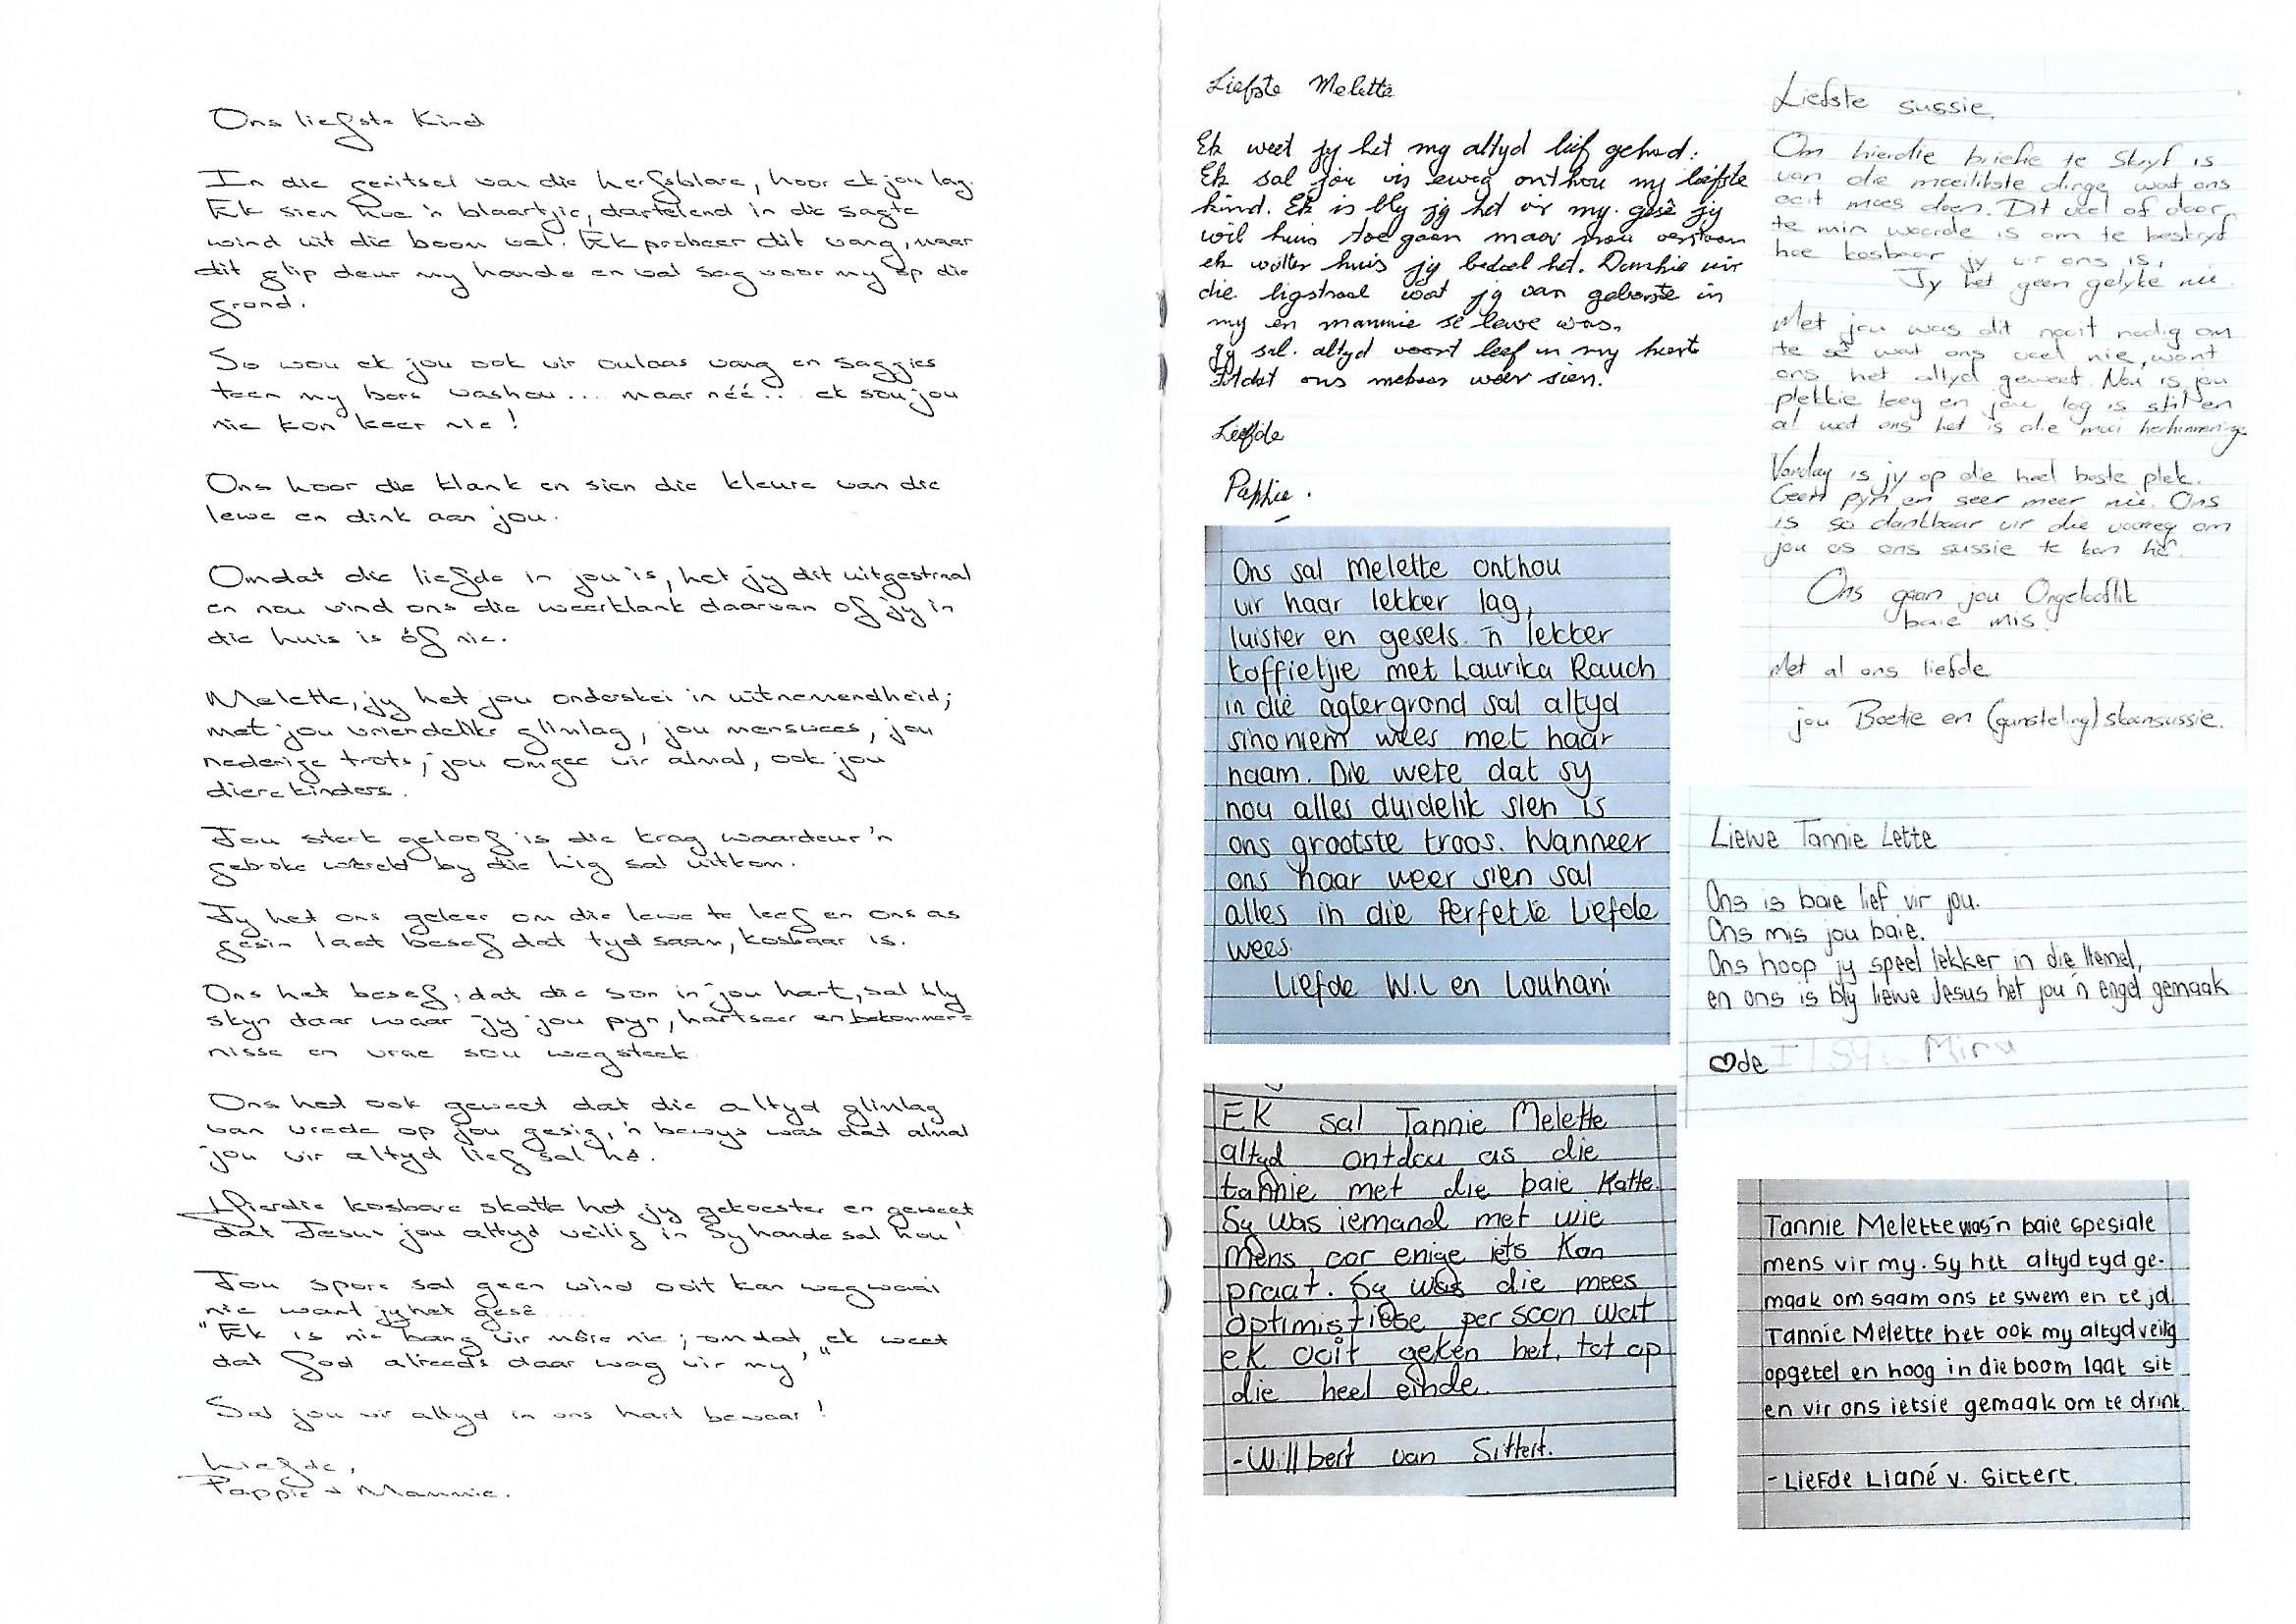 Ons liefste Kind
In die geritsel van die herfsblare, hoor ek jou lag.
Ek sien hoe 'n blaartjie, dartelend in die sagte
wind uit die boom val. Ek probeer dit vang, maar
dit glip deur my hande en val sag voor my op die
grond.
So wou ek jou ook vir oulaas vang en saggies
teen my bors vashou... maar néé... ek sou jou
nie kon keer nie!
Ons hoor die klank en sien die kleure van die
lewe en dink aan jou.
Omdat die liefde in jou is, het jy dit uitgestraal
en nou vind ons die weerklank daarvan of jy in
die huis is óf nie.
Melette, jy het jou onderskei in uitnemendheid;
met jou vriendelike glimlag, jou menswees, jou
nederige trots, jou omgee vir almal, ook jou
dierekinders.
Jou sterk geloof is die krag waardeur 'n
gebroke wêreld by die lig sal uitkom.
Jy het ons geleer om die lewe te leef en ons as
gesin laat besef dat tyd saam, kosbaar is.
Ons het besef, dat die son in jou hart, sal bly
skyn daar waar jy jou pyn, hartseer en bekommer=
nisse en vrae sou wegsteek.
Ons het ook geweet dat die altyd glimlag
van vrede op jou gesig, 'n bewys was dat almal
jou vir altyd lief sal hê.
Hierdie kosbare skatte het jy gekoester en geweet
dat Jesus jou altyd veilig in Sy hande sal hou!
Jou spore sal geen wind ooit kan wegwaai
nie want jy het gesê.....
"Ek is nie bang vir môre nie; omdat ek weet
dat God alreeds daar wag vir my"
Sal jou vir altyd in ons hart bewaar!
Liefde,
Pappie & Mammie.
Liefste Melette
Ek weet jy het my altyd lief gehad.
Ek sal jou vir ewig onthou my liefste
kind. Ek is bly jy het vir my gesê jy
wil huis toe gaan maar nou verstaan
ek watter huis jy bedoel het. Dankie vir
die ligstraal wat jy van geboorte in
my en mammie se lewe was.
Jy sal altyd voort leef in my hart
totdat ons mekaar weer sien.
Liefde
Pappie.
Liefste sussie,
Om hierdie briefie te skryf is
van die moeilikste dinge wat ons
ooit moes doen. Dit voel of daar
te min woorde is om te beskryf
hoe kosbaar jy vir ons is,
Jy het geen gelyke nie.
Met jou was dit nooit nodig om
te sê wat ons voel nie, want
ons het altyd geweet. Nou is jou
plekkie leeg en jou lag is stil en
al wat ons het is die mooi herhinneringe
Vandag is jy op die heel beste plek.
Geen pyn en seer meer nie. Ons
is so dankbaar vir die voorreg om
jou as ons sussie te kon hê.
Ons gaan jou Ongelooflik
baie mis.
Met al ons liefde
jou Boetie en (gunsteling) skoonsussie.
Ons sal Melette onthou
vir haar lekker lag,
luister en gesels. 'n lekker
koffietjie met Laurika Rauch
in die agtergrond sal altyd
sinoniem wees met haar
naam. Die wete dat sy
nou alles duidelik sien is
ons grootste troos. Wanneer
ons haar weer sien sal
alles in die Perfekte Liefde
wees.
Liefde W.L en Louhani
Liewe Tannie Lette
Ons is baie lief vir jou.
Ons mis jou baie.
Ons hoop jy speel lekker in die Hemel,
en ons is bly liewe Jesus het jou 'n engel gemaak
♡de Mira
Ek sal Tannie Melette
altyd ontdou as die
tannie met die baie Katte.
Sy was iemand met wie
mens oor enige iets kan
praat. Sy was die mees
optimistiese persoon wat
ek ooit geken het, tot op
die heel einde.
-Willbert van Sittert.
Tannie Melette was 'n baie spesiale
mens vir my. Sy het altyd tyd ge-
maak om saam ons te swem en te jol
Tannie Melette het ook my altyd veilig
opgetel en hoog in die boom laat sit
en vir ons ietsie gemaak om te drink.
- Liefde Liané v. Sittert.